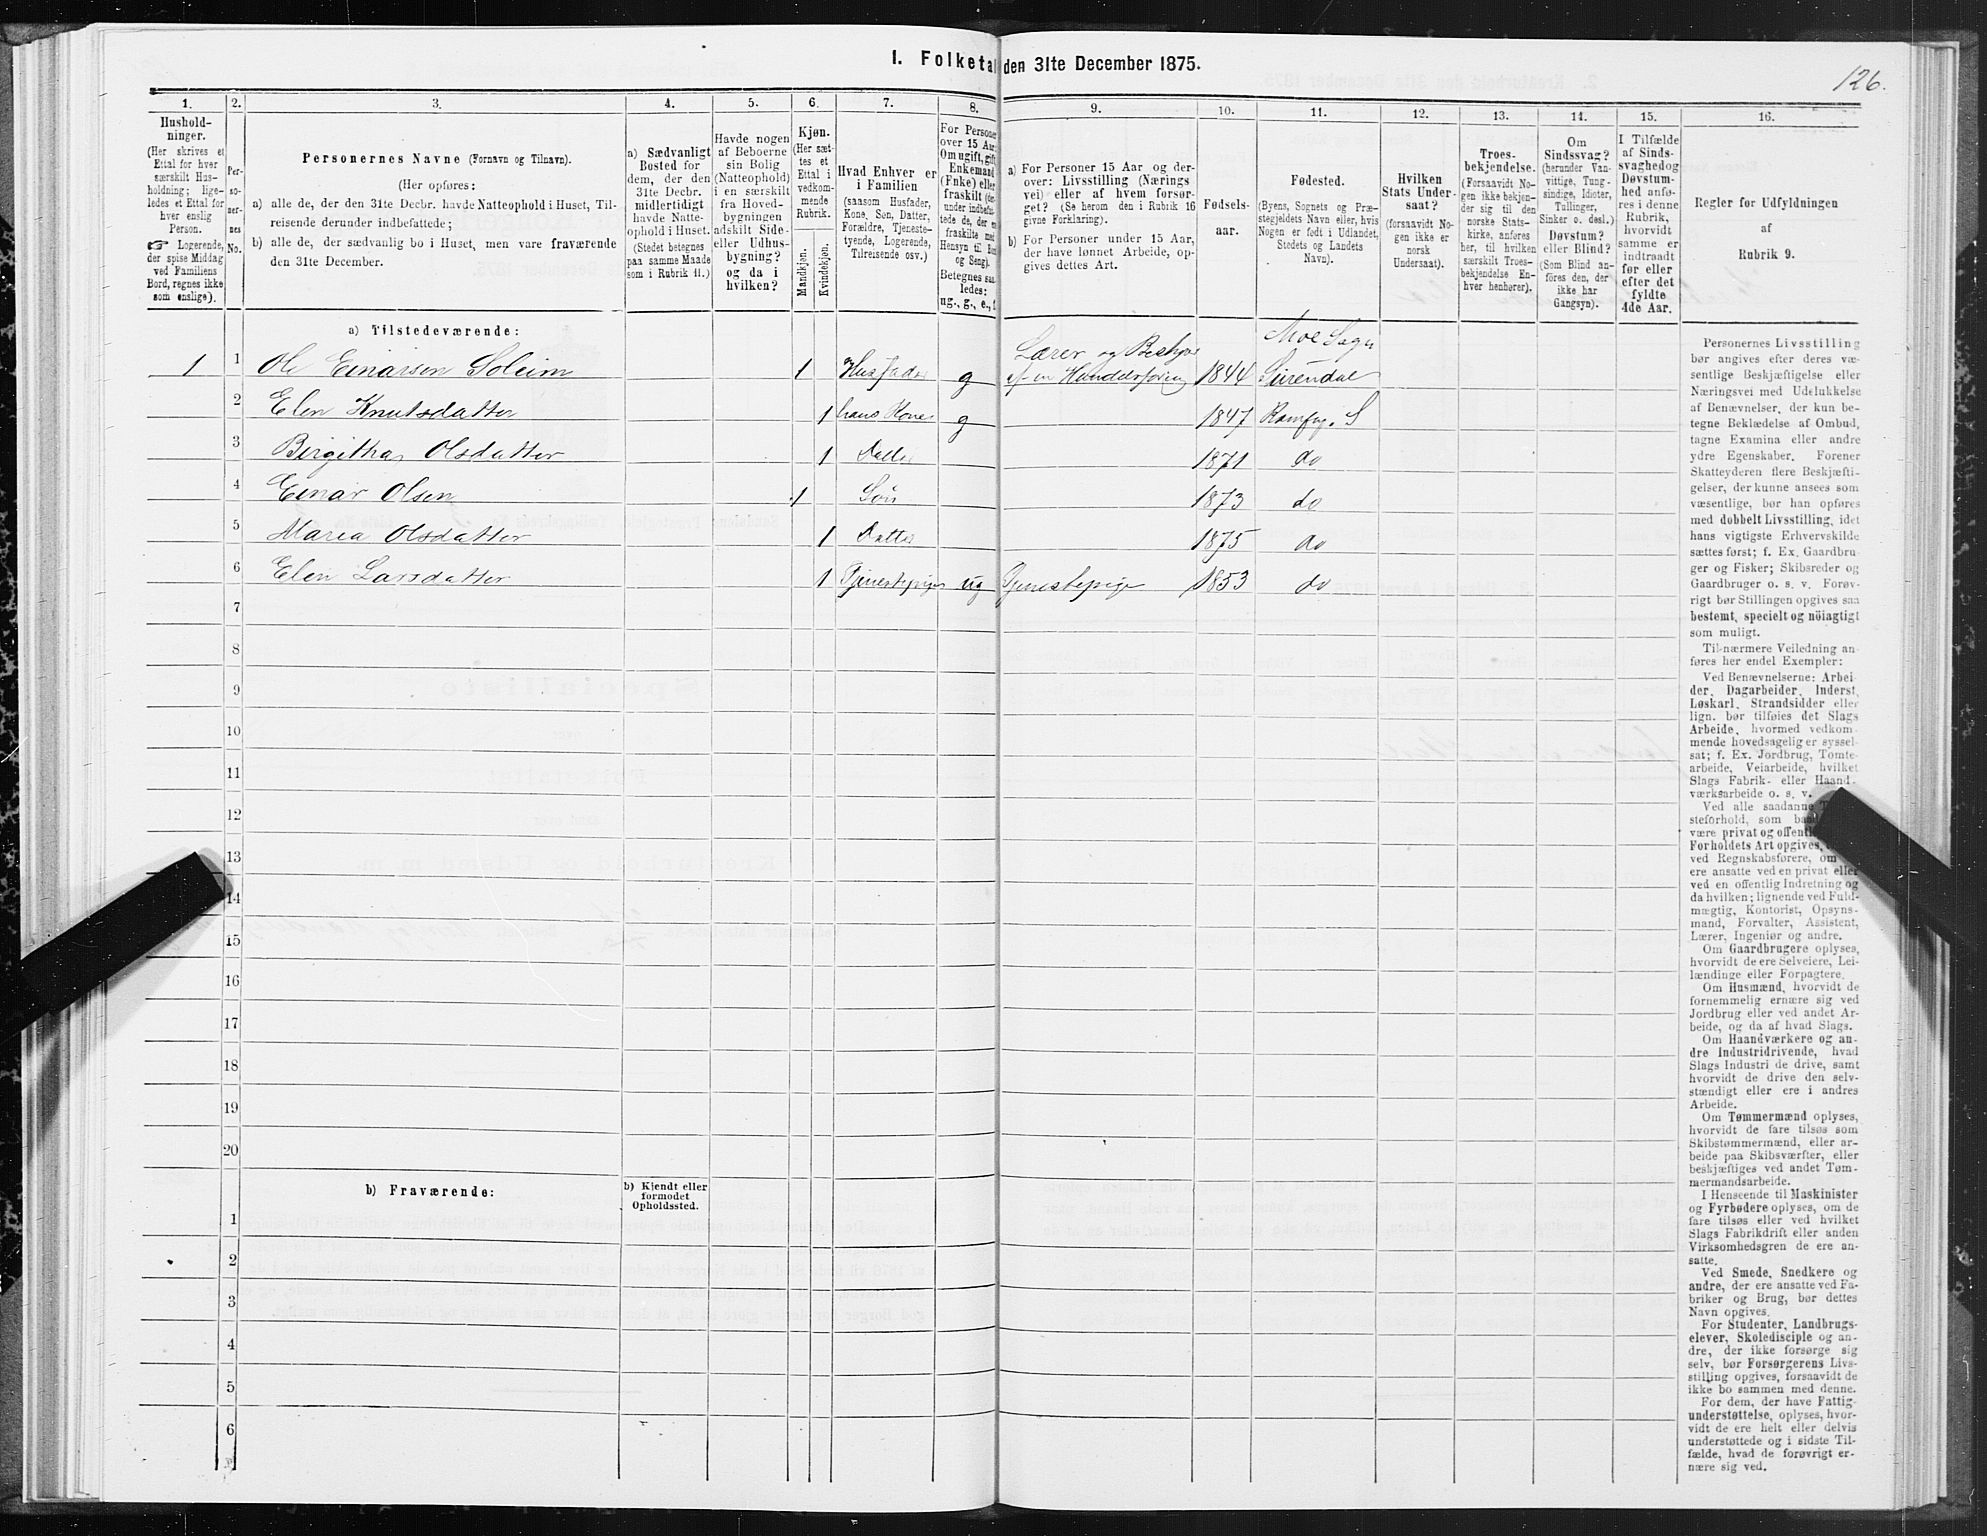 1. Folketal den 31te December 1875.
126.
1. 2. 3. 4. 5. 6. 7. 8. 9. 10. 11. 12. 13. 14. 15. 16.
Hushold-
ninger.
(Her skrives et
Ettal for hver
særskilt Hus-
holdning; lige-
ledes et Ettal for
hver enslig
Person.
☞ Logerende,
der spise Middag
ved Familiens
Bord, regnes ikke
som enslige).
Per-
so-
ner-
nes
No.
Personernes Navne (Fornavn og Tilnavn).
(Her opføres:
a) alle de, der den 31te Decbr. havde Natteophold i Huset, Til-
reisende derunder indbefattede;
b) alle de, der sædvanlig bo i Huset, men vare fraværende
den 31te December.
a) Sædvanligt
Bosted for
dem, der den
31te Decbr.
midlertidigt
havde Natte-
ophold i Huset.
(Stedet betegnes
paa samme Maade
som i Rubrik 11.)
Havde nogen
af Beboerne
sin Bolig
(Natteophold)
i en særskilt
fra Hoved-
bygningen
adskilt Side-
eller Udhus-
bygning?
og da i
hvilken?
Kjøn.
(Her sæt-
tes et
Ettal i
vedkom-
mende
Rubrik.
Mandkjøn.
Kvindekjøn.
Hvad Enhver er
i Familien
(saasom Husfader,
Kone, Søn, Datter,
Forældre, Tjeneste-
tyende, Logerende,
Tilreisende osv.)
For Personer
over 15 Aar:
Om ugift, gift,
Enkemand
(Enke) eller
fraskilt (der-
under indbefat-
tede de, der ere
fraskilte med
Hensyn til Bord
og Seng).
Betegnes saa-
ledes:
ug., g., e., f.
a) For Personer 15 Aar og der-
over: Livsstilling (Nærings
vei) eller af hvem forsør-
get? (Se herom den i Rubrik 16
givne Forklaring).
b) For Personer under 15 Aar,
der have lønnet Arbeide, op-
gives dettes Art.
Fødsels-
aar.
Fødested.
(Byens, Sognets og Præ-
stegjeldets Navn eller, hvis
Nogen er født i Udlandet,
Stedets og Landets
Navn).
Hvilken
Stats Under-
saat?
(forsaavidt No-
gen ikke er
norsk
Undersaat).
Troes-
bekjendelse.
(Forsaavidt No-
gen ikke bekjen-
der sig til den
norske Stats-
kirke, anføres
her, til hvilken
særskilt Troes-
bekjendelse En-
hver henhører).
Om
Sindssvag?
(herunder Van-
vittige, Tung-
sindige, Idioter,
Tullinger,
Sinker o. desl.)
Døvstum?
eller Blind?
(Som Blind an-
føres den, der
ikke har
Gangsyn).
I Tilfælde
af Sinds-
svaghedog
Døvstum-
hed anfø-
res i denne
Rubrik,
hvorvidt
samme er
indtraadt
før eller
efter det
fyldte
4de Aar.
Regler for Udfyldningen
af
Rubrik 9.
a) Tilstedeværende:
1 1 Ole Einarsen Soleim 1 Husfader g Lærer og Bestyrer af en Handelsforening 1844 Moe Sogn Surendal
2 Elen Knutsdatter 1 hans Kone g 1847 S
3 Birgitha Olsdatter 1 Datter 1871 do
4 Einar Olsen 1 Søn 1873 do
5 Maria Olsdatter 1 Datter 1875 do
6 Elen Larsdatter 1 Tjenestepige ug Tjenestepige 1853 do
7
8
9
10
11
12
13
14
15
16
17
18
19
20
b) Fraværende:
b) Kjendt eller
formodet
Opholdssted.
1
2
3
4
5
6
Personernes Livsstilling
bør angives efter deres væ-
sentlige Beskjæftigelse eller
Næringsvei med Udelukkelse
af Benævnelser, der kun be-
tegne Beklædelse af Ombud,
tagne Examina eller andre
ydre Egenskaber. Forener
Skatteyderen flere Beskjæfti-
gelser, der kunne ansees som
væsentlige, bør han opføres
med dobbelt Livsstilling, idet
hans vigtigste Erhvervskilde
sættes først; f. Ex. Gaardbru-
ger og Fisker; Skibsreder og
Gaardbruger o. s. v. Forøv-
rigt bør Stillingen opgives saa
bestemt, specielt og nöiagtigt
som muligt.
Til nærmere Veiledning an-
føres her endel Exempler:
Ved Benævnelserne: Arbei-
der, Dagarbeider, Inderst,
Løskarl, Strandsidder eller
lign. bør tilføies det Slags
Arbeide, hvormed vedkom-
mende hovedsagelig er syssel-
sat; f. Ex. Jordbrug, Tomte-
arbeide, Veiarbeide, hvilket
Slags Fabrik- eller Haand-
værksarbeide o. s. v.
Ved alle saadanne
steforhold, som
være privat og
Forholdets Art opgives,
ved Regnskabsførere, om
ere ansatte ved en privat eller
ved en offentlig Indretning og
da hvilken; lignende ved Fuld-
mægtig, Kontorist, Opsyns-
mand, Forvalter, Assistent,
Lærer, Ingeniør og andre.
Om Gaardbrugere oplyses,
hvorvidt de ere Selveiere, Lei-
lændinge eller Forpagtere.
Om Husmænd, hvorvidt de
fornemmelig ernære sig ved
Jordbrug eller ved andet Ar-
beide, og da af hvad Slags.
Om Haandværkere og an-
dre Industridrivende, hvad
Slags Industri de drive, samt
hvorvidt de drive den selv-
stændigt eller ere i andres
Arbeide.
Om Tømmermænd oplyses,
hvorvidt de fare tilsøs som
Skibstømmermænd, eller ar-
beide paa Skibsværfter, eller
beskjæftiges ved andet Tøm-
mermandsarbeide.
I Henseende til Maskinister
og Fyrbødere oplyses, om de
fare tilsøs eller ved hvilket
Slags Fabrikdrift eller anden
Virksomhedsgren de ere an-
satte.
Ved Smede, Snedkere og
andre, der ere ansatte ved Fa-
briker og Brug, bør dettes
Navn opgives.
For Studenter, Landbrugs-
elever, Skoledisciple og an-
dre, der ikke forsørge sig
selv, bør Forsørgerens Livs-
stilling opgives, forsaavidt de
ikke bo sammen med denne.
For dem, der have Fattig-
understøttelse, oplyses, hvor-
vidt de ere helt eller delvis
understøttede og i sidste Til-
fælde, hvad de forøvrigt er-
nære sig ved.